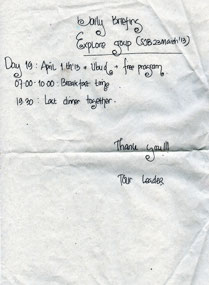 Daily Briefing
Explore group (SOB 23 March '13)
Day 19 : April 1th 13 + Ubud + free program
07.00 - 10.00 : Breakfast time
19.30 : Last dinner together.
Thank you!!!
Tour Leader